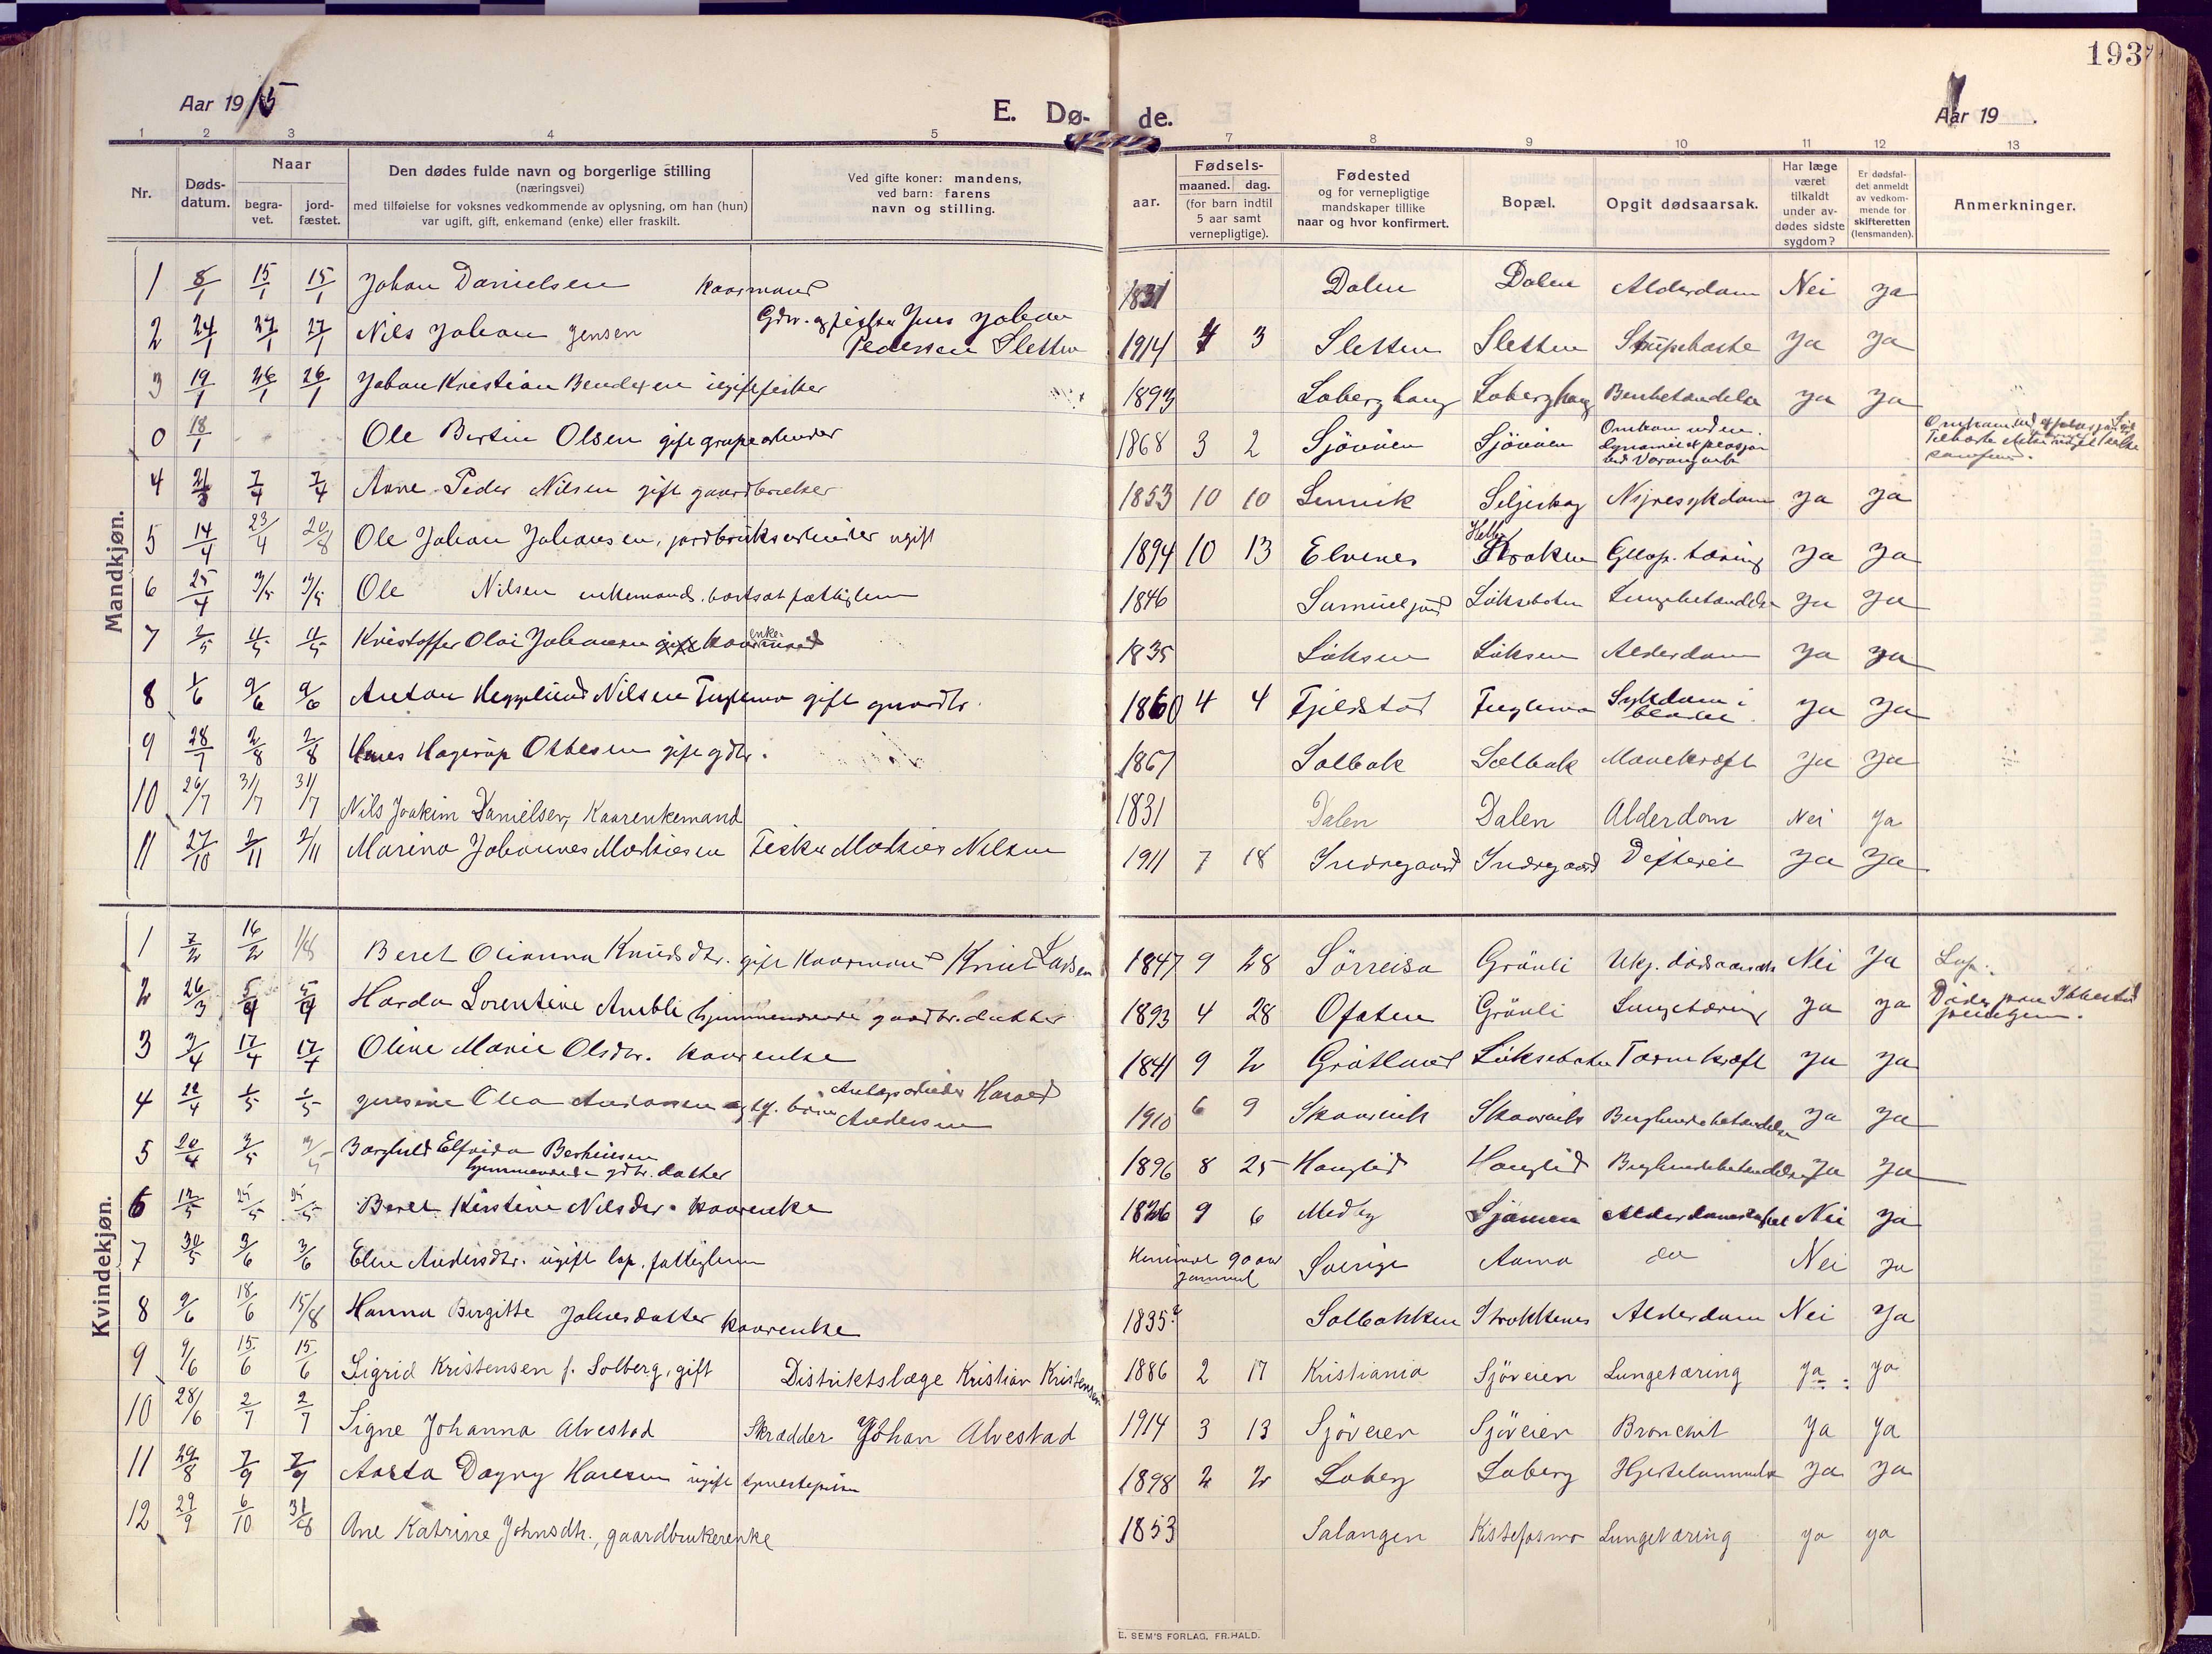 193
Aar 1915
E. Dø- de.
Aar 19 .
1 2 3 4 5 7 8 9 10 11 12 13
Nr.
Døds-datum.
Naar
begra-vet.
jord-fæstet.
Den dødes fulde navn og borgerlige stilling
(næringsvei)
med tilføielse for voksnes vedkommende av oplysning, om han (hun)
var ugift, gift, enkemand (enke) eller fraskilt.
Ved gifte koner: mandens,
ved barn: farens
navn og stilling.
aar.
Fødsels-
maaned. dag.
(for barn indtil
5 aar samt
vernepligtige).
Fødested
og for vernepligtige
mandskaper tillike
naar og hvor konfirmert.
Bopæl.
Opgit dødsaarsak.
Har læge
været
tilkaldt
under av-
dødes sidste
sygdom?
Er dødsfal-
det anmeldt
av vedkom-
mende for
skifteretten
(lensmanden).
Anmerkninger.
Mandkjøn.
1 8/1 15/1 15/1 Johan Danielsen Kaarmand 1831 Dalen Dalen Alderdom Nei Ja
2 24/1 27/1 27/1 Nils Johan Jensen Gdbr. og fisker Jens Johan
Pedersen Sletten 1914 4 3 Sletten Sletten Strupehoste Ja Ja
3 19/1 26/1 26/1 Johan Kristian Bendixen ugift fisker 1893 Loberghaug Loberghaug Benbetændelse Ja Ja
0 18/1 Ole Bertin Olsen gift grubearbeider 1868 3 2 Sjøveien Sjøveien Omkom ved en
dynamit explosjon
4 21/3 7/4 7/4 Arne Peder Nilsen gift gaardbruker 1853 10 10 Lenvik Seljeskog Nyresykdom Ja Ja
5 14/4 23/4 20/8 Ole Johan Johansen, jordbruksarbeider ugift 1894 10 13 Elvenes Kroken Gallop. tæring Ja Ja
6 25/4 3/5 3/5 Ole Nilsen enkemand. bortsat fattiglem 1846 Løksebotn Lungebetændelse Ja Ja
7 2/5 11/5 11/5 Kristoffer Oloi Johansen gift kaarmand enke- 1835 Løksen Løksen Alderdom Ja Ja
8 1/6 9/6 9/6 Anton Hegglund Nilsen Fuglemo gift gaardbr. 1860 4 4 Fjeldstad Fuglemo Sykdom i
blæren Ja Ja
9 28/7 2/8 2/8 Hans Hagerup Ottesen gift gdbr. 1867 Solbak Solbak Mavekræft Ja Ja
10 26/7 31/7 31/7 Nils Joakim Danielsen, Kaarenkemand 1831 Dalen Dalen Alderdom Nei Ja
11 27/10 2/11 2/11 Marino Johannes Mathiesen Fisker Mathias Nilsen 1911 7 18 Indregaard Indregaard Defteri Ja Ja
Kvindekjøn.
1 7/2 16/2 1/8 Beret Olianna Knudsdtr. gift Kaarmand Knut Larsen 1847 9 28 Sørreisa Grønli Ukj. dødsaarsak Nei Ja Lap.
2 26/3 5/4 5/4 Harda Lorentine Amble hjemmeværende gaardbr. datter 1893 4 28 Ofoten Grønli Lungetæring Ja Ja Døde paa Ibbestad
3 3/4 17/4 17/4 Oline Marie Olsdtr. kaarenke 1841 9 2 Gratland Løksebotn Tarmkræft Ja Ja
4 22/4 1/5 1/5 Jensine Olea Andersen Anlægsarbeider Harald
Andersen 1910 6 9 Skaarvik Skaarvik Brysthindebetændelse Ja Ja
5 20/4 3/5 3/5 Borghild Elfrida Berthinsen
hjemmeværende gdbr. datter 1896 8 25 Hanglid Hanglid Brysthindebetændelse Ja Ja
6 12/5 25/5 25/5 Beret Kirstine Nilsdtr. kaarenke 1826 9 6 Medby Sjømoen Alderdomssvakhet Nei Ja
7 30/5 3/6 3/6 Elen Andersdtr. ugift lap. fattiglem 90 aar
gammel Sverige do Nei Ja
8 9/6 18/6 15/8 Hanna Birgitte Johnsdatter kaarenke 1835 Solbakken Strokkenes Alderdom Nei Ja
9 9/6 15/6 15/6 Sigrid Kristensen f. Solberg, gift Distriktslæge Kristian Kristensen 1886 2 17 Kristiania Sjøveien Lungetæring Ja Ja
10 28/6 2/7 2/7 Signe Johanna Alvestad Skrædder Johan Alvestad 1914 3 13 Sjøveien Sjøveien Bronchit Ja Ja
11 29/8 7/9 7/9 Aasta Dagny Hansen ugift tjenestepike 1898 2 2 Loberg Loberg Hjertelammelse Ja Ja
12 29/9 6/10 31/8 Ane Katrine Johnsdtr., gaardbrukerenke 1853 Salangen Kistefosmo Lungetæring Ja Ja
E. SEM'S FORLAG, FR.HALD.